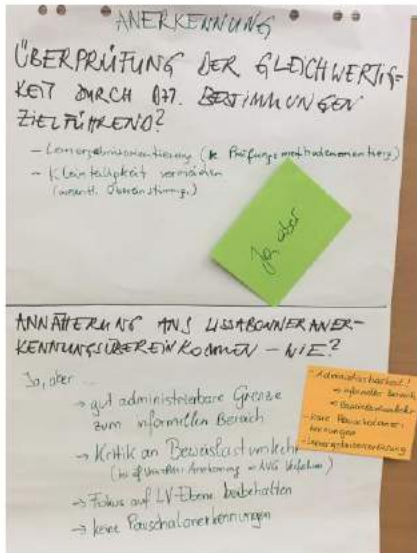 ANERKENNUNG
ÜBERPRÜFUNG DER GLEICHWERTIG-
KEIT DURCH DZT. BESTIMMUNGEN
ZIELFÜHREND?
- Lernergebnisorientierung (k. Prüfungsmethodenorientierg)
- Kleinteiligkeit vermeiden
(wesentl. Übereinstimmg.)
Ja, aber
ANNÄHERUNG ANS LISSABONNER ANER-
KENNUNGSÜBEREINKOMMEN - WIE?
Ja, aber ...
→ gut administrierbare Grenze
zum informellen Bereich
→ Kritik an Beweislastumkehr
(bei Anerkennung → AVG Verfahren)
→ Fokus auf LV-Ebene beibehalten
→ keine Pauschalanerkennungen
- Administrierbarkeit!
→ informeller Bereich
→ Beweislastumkehr
- keine Pauschalaner-
kennungen